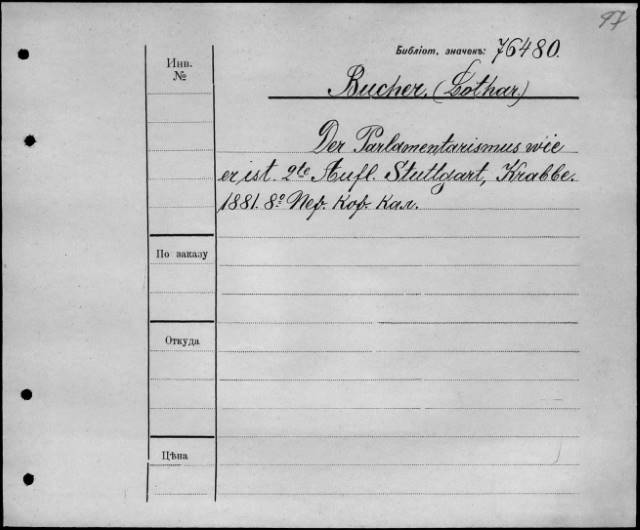 97
Библіот. значекъ: 76480.
Инв.
№
Bucher. (Lothar)
Der Parlamentarismus wie
er ist. 2te Aufl. Stuttgart, Krabbe.
1881. 8º Пер. Кор. Кал.
По заказу
Откуда
Цѣна